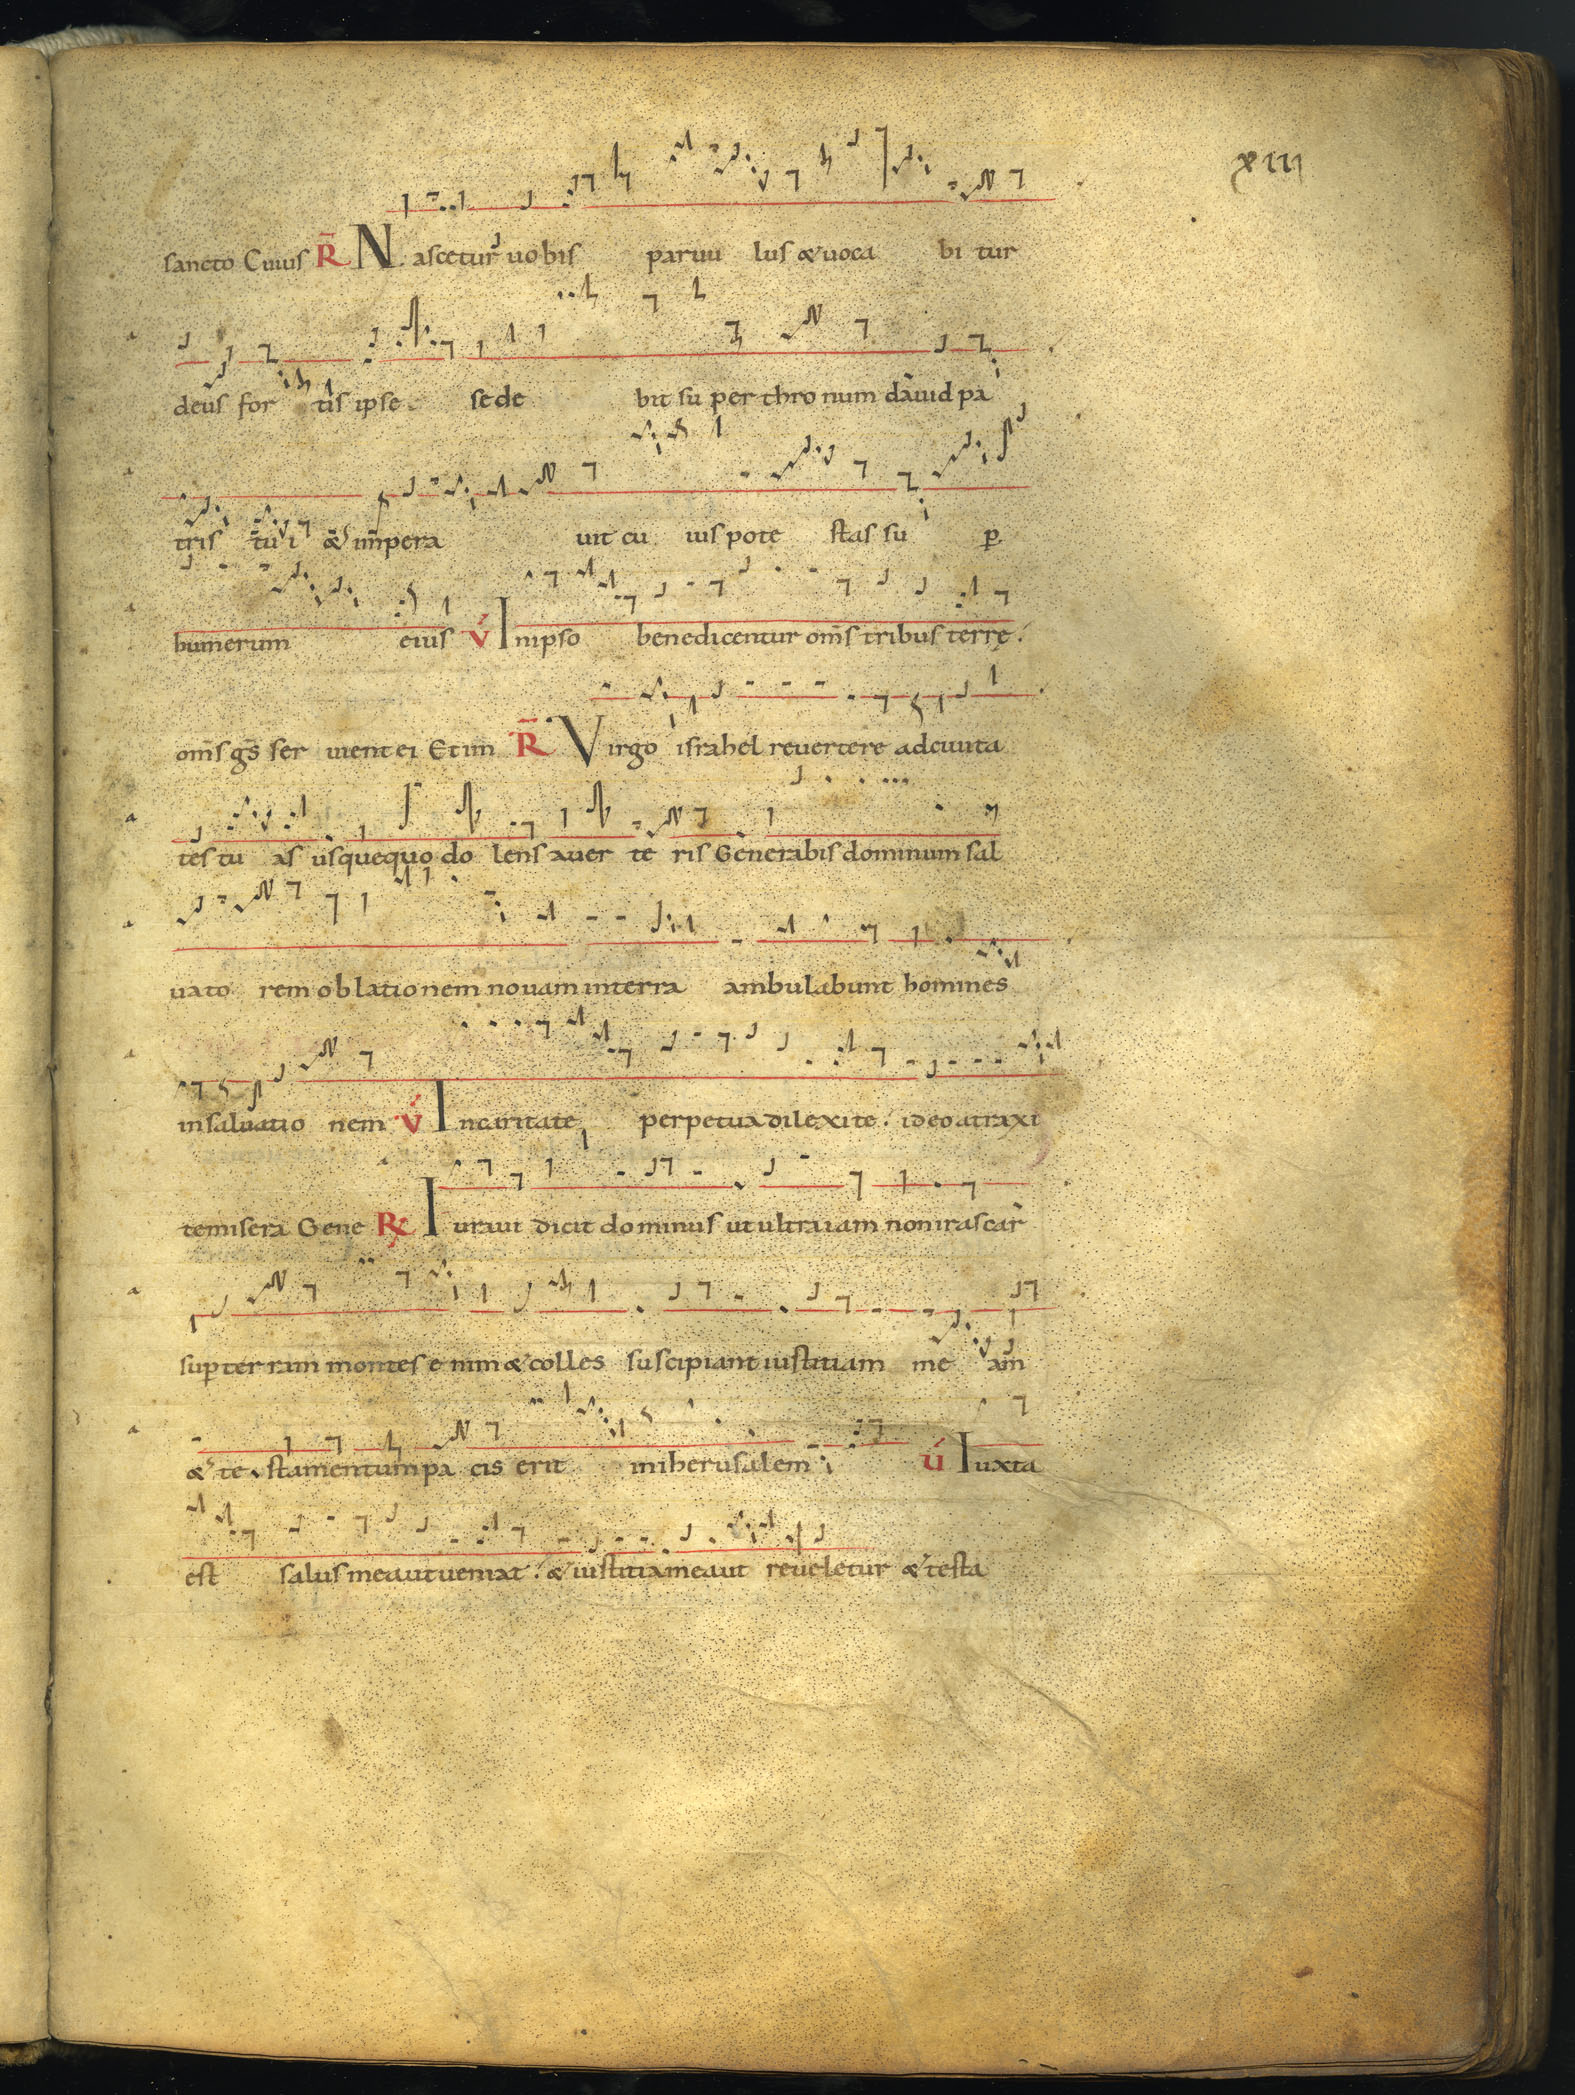 xiii
sancto Cuius R̄ Nascetur uobis paruu lus & uoca bi tur
deus for tis ipse sede bit su per thro num dauid pa
tris tu i & impera uit cu ius pote stas su p̱
humerum eius v́ Inipso benedicentur om̄s tribus terrę.
om̄s gs̄ ser uient ei Et im R̄ Virgo israhel reuertere adciuita
tes tu as usquequo do lens auer te ris Generabis dominum sal
uato rem oblationem nouam interra ambulabunt homines
insaluatio nem v́ Incaritate perpetua dilexi te. ideo atraxi
te misera Gene R Iurauit dicit dominus ut ultra iam non irascar
sup ter ram montes e nim & colles suscipiant iustitiam me am
& te stamentum pa cis erit iniherusalem v́ Iuxta
est salus mea ut ueniat. & iustitia mea ut reueletur & testa